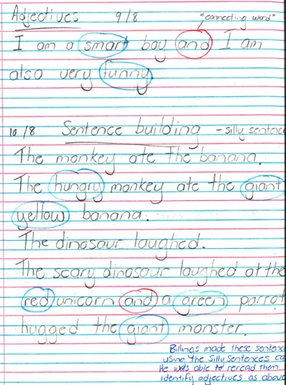 Adjectives 9/8 "connecting word"
I am a smart boy and I am
also very funny
10/8 Sentence building - silly sentence
The monkey ate the banana.
The hungry monkey ate the giant
yellow banana.
The dinosaur laughed.
The scary dinosaur laughed at the
red unicorn and a green parrot
hugged the giant monster.
Billings made these sentenc
using the silly sentences ca
He was able to reread them
identify adjectives as above